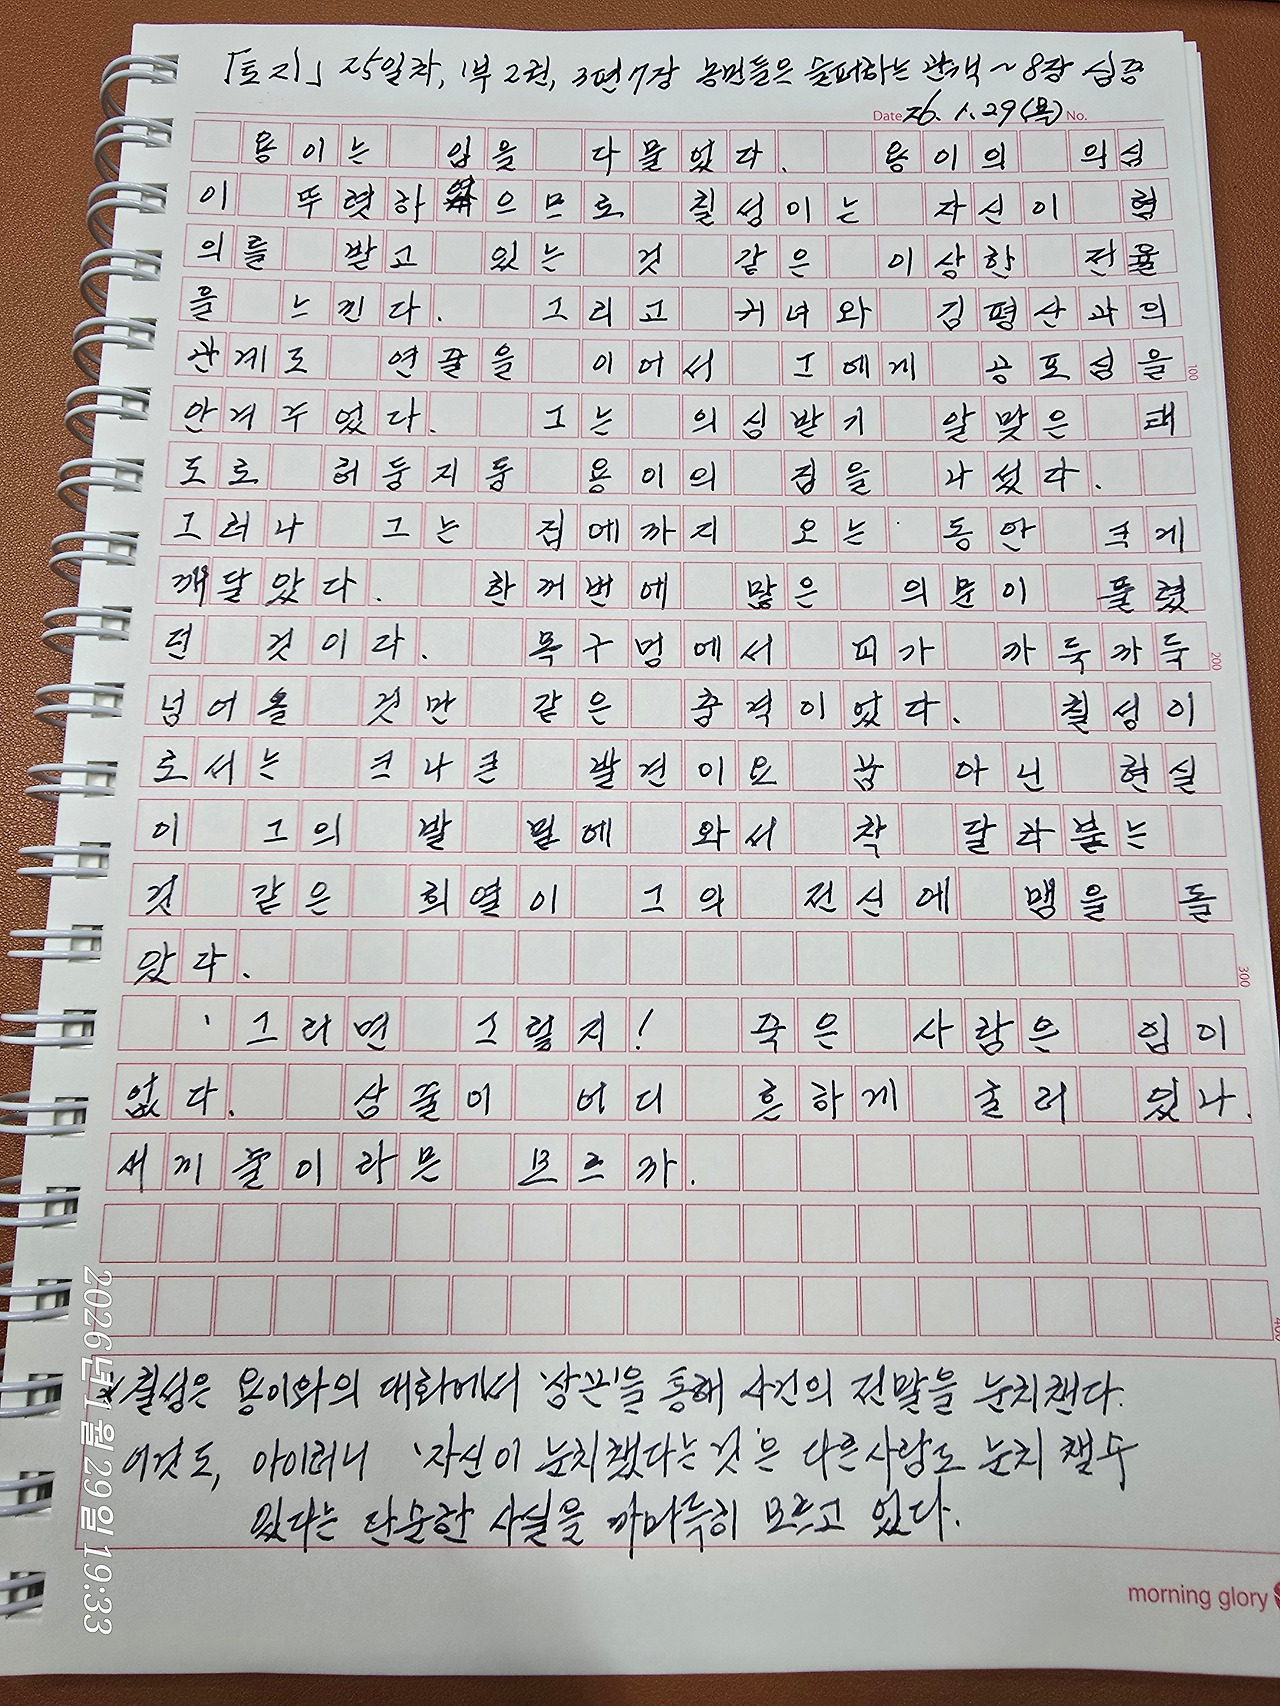 「토지」 25일차, 1부 2권, 3편 7장 농민들은 슬퍼하는 관객 ~ 8장 심증
Date 26. 1. 29 (목) No.
용이는 입을 다물었다. 용이의 의심
이 뚜렷하였으므로 칠성이는 자신이 혐
의를 받고 있는 것 같은 이상한 전율
을 느낀다. 그리고 귀녀와 김평산과의
관계로 연줄을 이어서 그에게 공포심을
안겨주었다. 그는 의심받기 알맞은 태
도로 허둥지둥 용이의 집을 나섰다.
그러나 그는 집에까지 오는 동안 크게
깨달았다. 한꺼번에 많은 의문이 풀렸
던 것이다. 목구멍에서 피가 까둑까둑
넘어올 것만 같은 충격이었다. 칠성이
로서는 크나큰 발견이요 꿈 아닌 현실
이 그의 발 밑에 와서 착 달라붙는
것 같은 희열이 그의 전신에 맴을 돌
았다.
'그러면 그렇지! 죽은 사람은 입이
없다. 삼줄이 어디 흔하게 굴러 있나.
새끼줄이라믄 모르까.
100
200
300
400
※ 칠성은 용이와의 대화에서 '삼끈'을 통해 사건의 전말을 눈치챈다.
이것도, 아이러니 '자신이 눈치챘다는 것'은 다른 사람도 눈치 챌 수
있다는 단순한 사실을 까마득히 모르고 있다.
morning glory
2026년 1월 29일 19:33